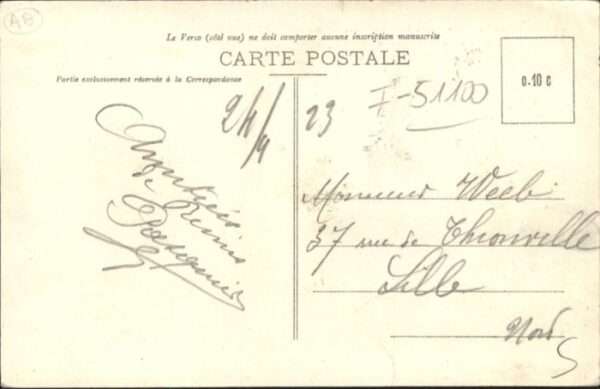 AB
Le Verso (côté vue) ne doit comporter aucune inscription manuscrite
CARTE POSTALE
Partie exclusivement réservée à la Correspondance
0.10 c
I-51100
24/9 23
Amitiés
de Reims
Monsieur Weebi
37 rue de Thionville
Lille
Nord